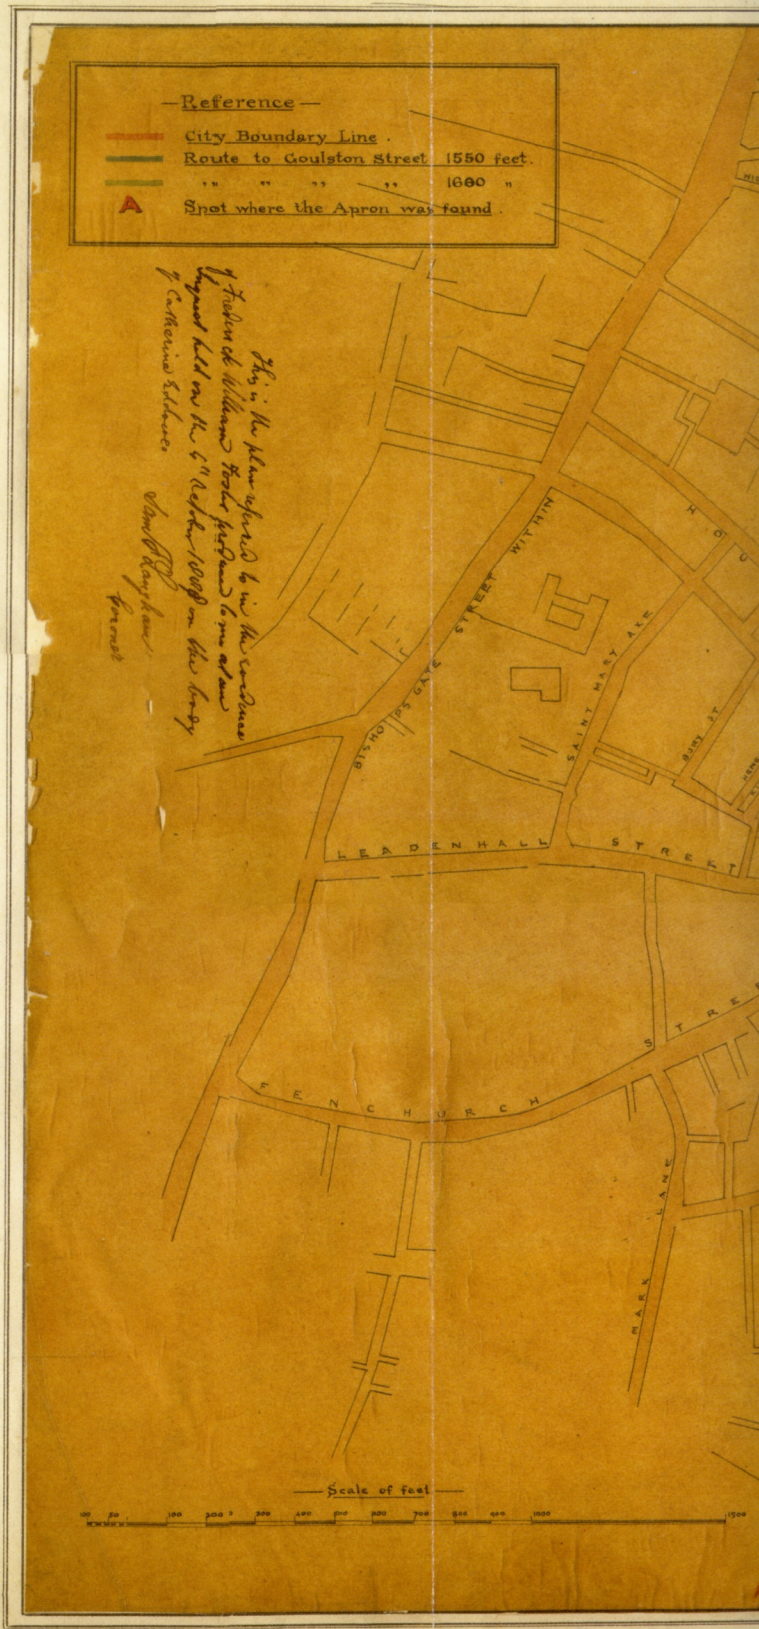 — Reference —
City Boundary Line .
Route to Goulston Street 1550 feet.
" " " " 1600 "
A Spot where the Apron was found .
This is the plan referred to in the evidence
of Frederick William Foster produced to me at an
inquest held on the 4th October 1888 on the body
of Catherine Eddowes
Saml F Langham
Coroner
BISHOPSGATE STREET WITHIN
HOU
SAINT MARY AXE
BURY ST
LEADENHALL STREET
FENCHURCH STREE
MARK LANE
— Scale of feet —
100 50 100 200 300 400 500 600 700 800 900 1000 1500